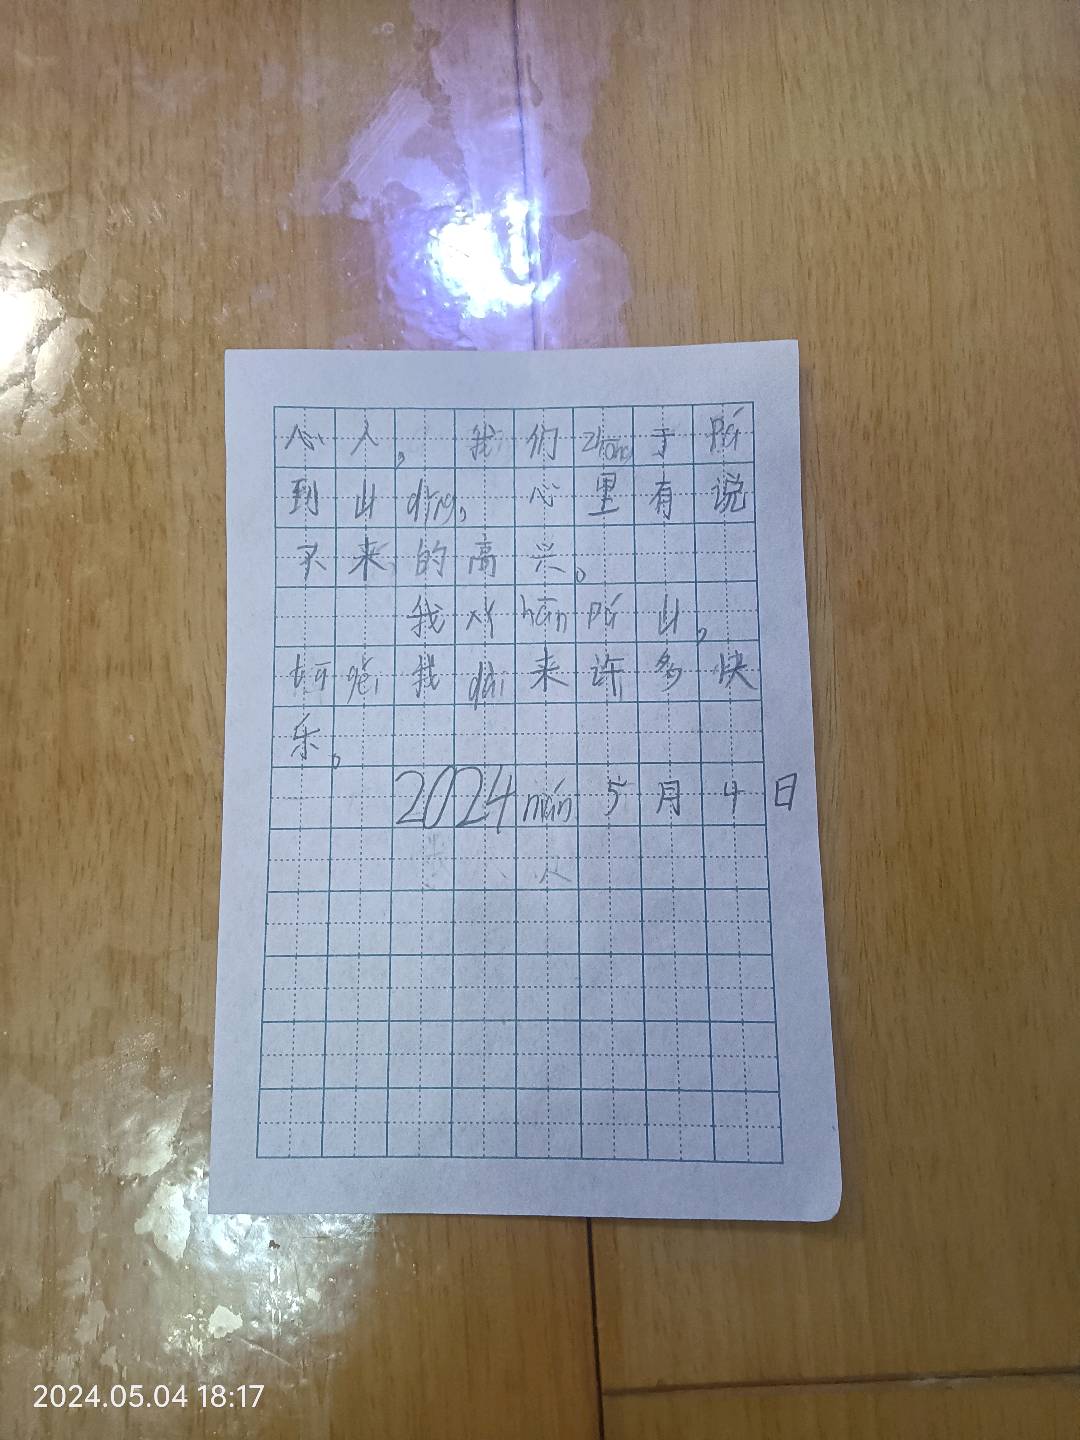 心人，我们zhōng于pá
到山dǐng，心里有说
不来的高兴。
我xǐ huān pá山，
好gěi我dài来许多快
乐。
2024nián5月4日
2024.05.04 18:17